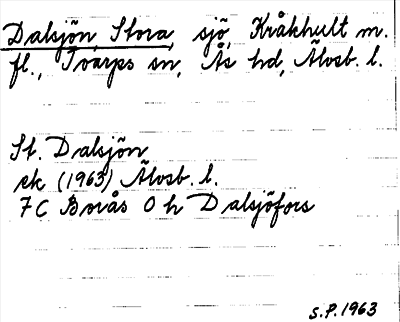 Dalsjön, Stora, sjö, Kråkhult m.
fl., Tvärps sn, Ås hd, Älvsb. l.
St. Dalsjön
ek (1963) Älvsb. l.
7C Borås 0 h Dalsjöfors
S.P. 1963